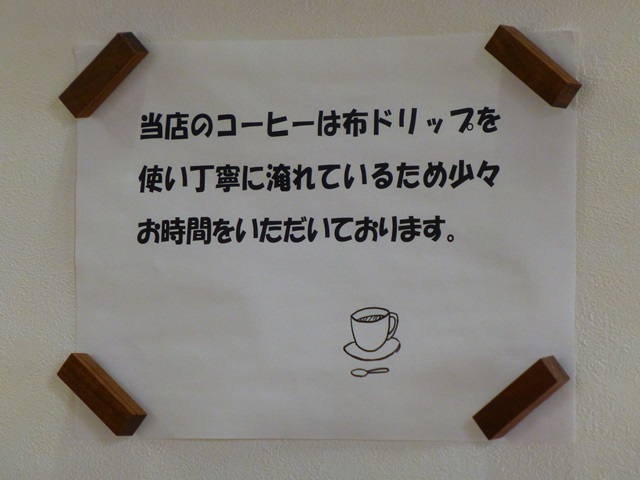 当店のコーヒーは布ドリップを
使い丁寧に淹れているため少々
お時間をいただいております。